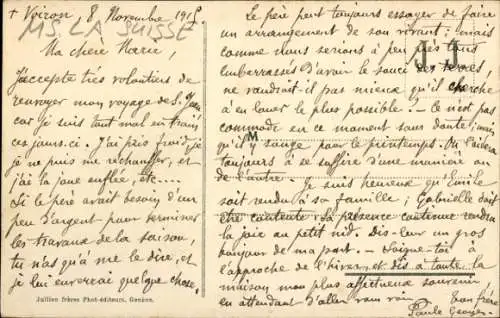 + Voiron, 8 Novembre 191
MS. LA SUISSE
Ma chère Marie,
J'accepte très volontiers de
renvoyer mon voyage de S. Jean
car je suis tout mal en train
ces jours-ci. J'ai pris froid, je
je ne puis me réchauffer, et
j'ai la joue enflée, etc....
Si le père avait besoin d'un
peu d'argent pour terminer
les travaux de la saison,
tu n'as qu'à me le dire, et
je lui enverrai quelque chose.
Jullien frères Phot-éditeurs, Genève.
Le père peut toujours essayer de faire
un arrangement de son ; mais
comme nous serions à peu près tous
embarrassés d'avoir le souci des terres,
ne vaudrait il pas mieux qu'il cherche
à en louer le plus possible? - Ce n'est pas
commode en ce moment sans doute; mais
qu'il y songe pour le printemps. On
toujours à se suffire d'une manière ou
de l'autre. Je suis heureux qu'Emile
soit rendu à sa famille; Gabrielle doit
être contente. Sa présence rendra
la joie au petit nid. Dis-leur un gros
bonjour de ma part. - Soigne-toi à
l'approche de l'hiver et dis à toute la
maison mon plus affectueux souvenir,
en attendant d'aller vous voir. Ton frère
Georges